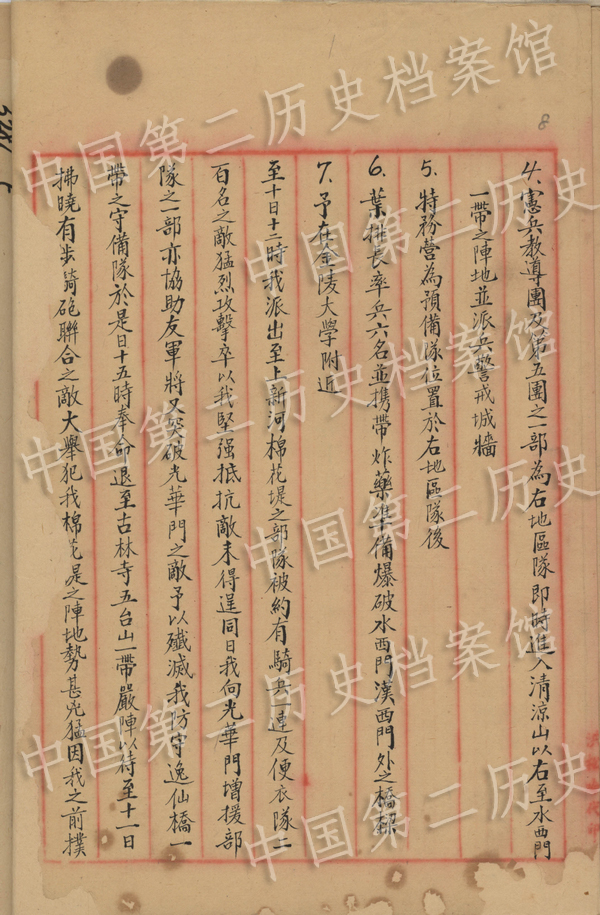 8
4、憲兵教導團及第五團之一部為右地區隊即時進入清凉山以右至水西門
一帶之陣地並派兵警戒城牆
5、特務營為預備隊位置於右地區隊後
6、葉排長率兵六名並携帶炸藥準備爆破水西門漢西門外之橋樑
7、予在金陵大學附近
至十日十二時我派出至上新河棉花堤之部隊被約有騎兵一連及便衣隊二
百名之敵猛烈攻擊卒以我堅强抵抗敵未得逞同日我向光華門增援部
隊之一部亦協助友軍將又突破光華門之敵予以殲滅我防守逸仙橋一
帶之守備隊於是日十五時奉命退至古林寺五台山一帶嚴陣以待至十一日
拂曉有步騎砲聯合之敵大舉犯我棉花是之陣地勢甚兇猛因我之前撲
中国第二历史档案馆
中国第二历史
中国第二历史档案馆
中国第二历史
中国第二历史档案馆
中国第二历史